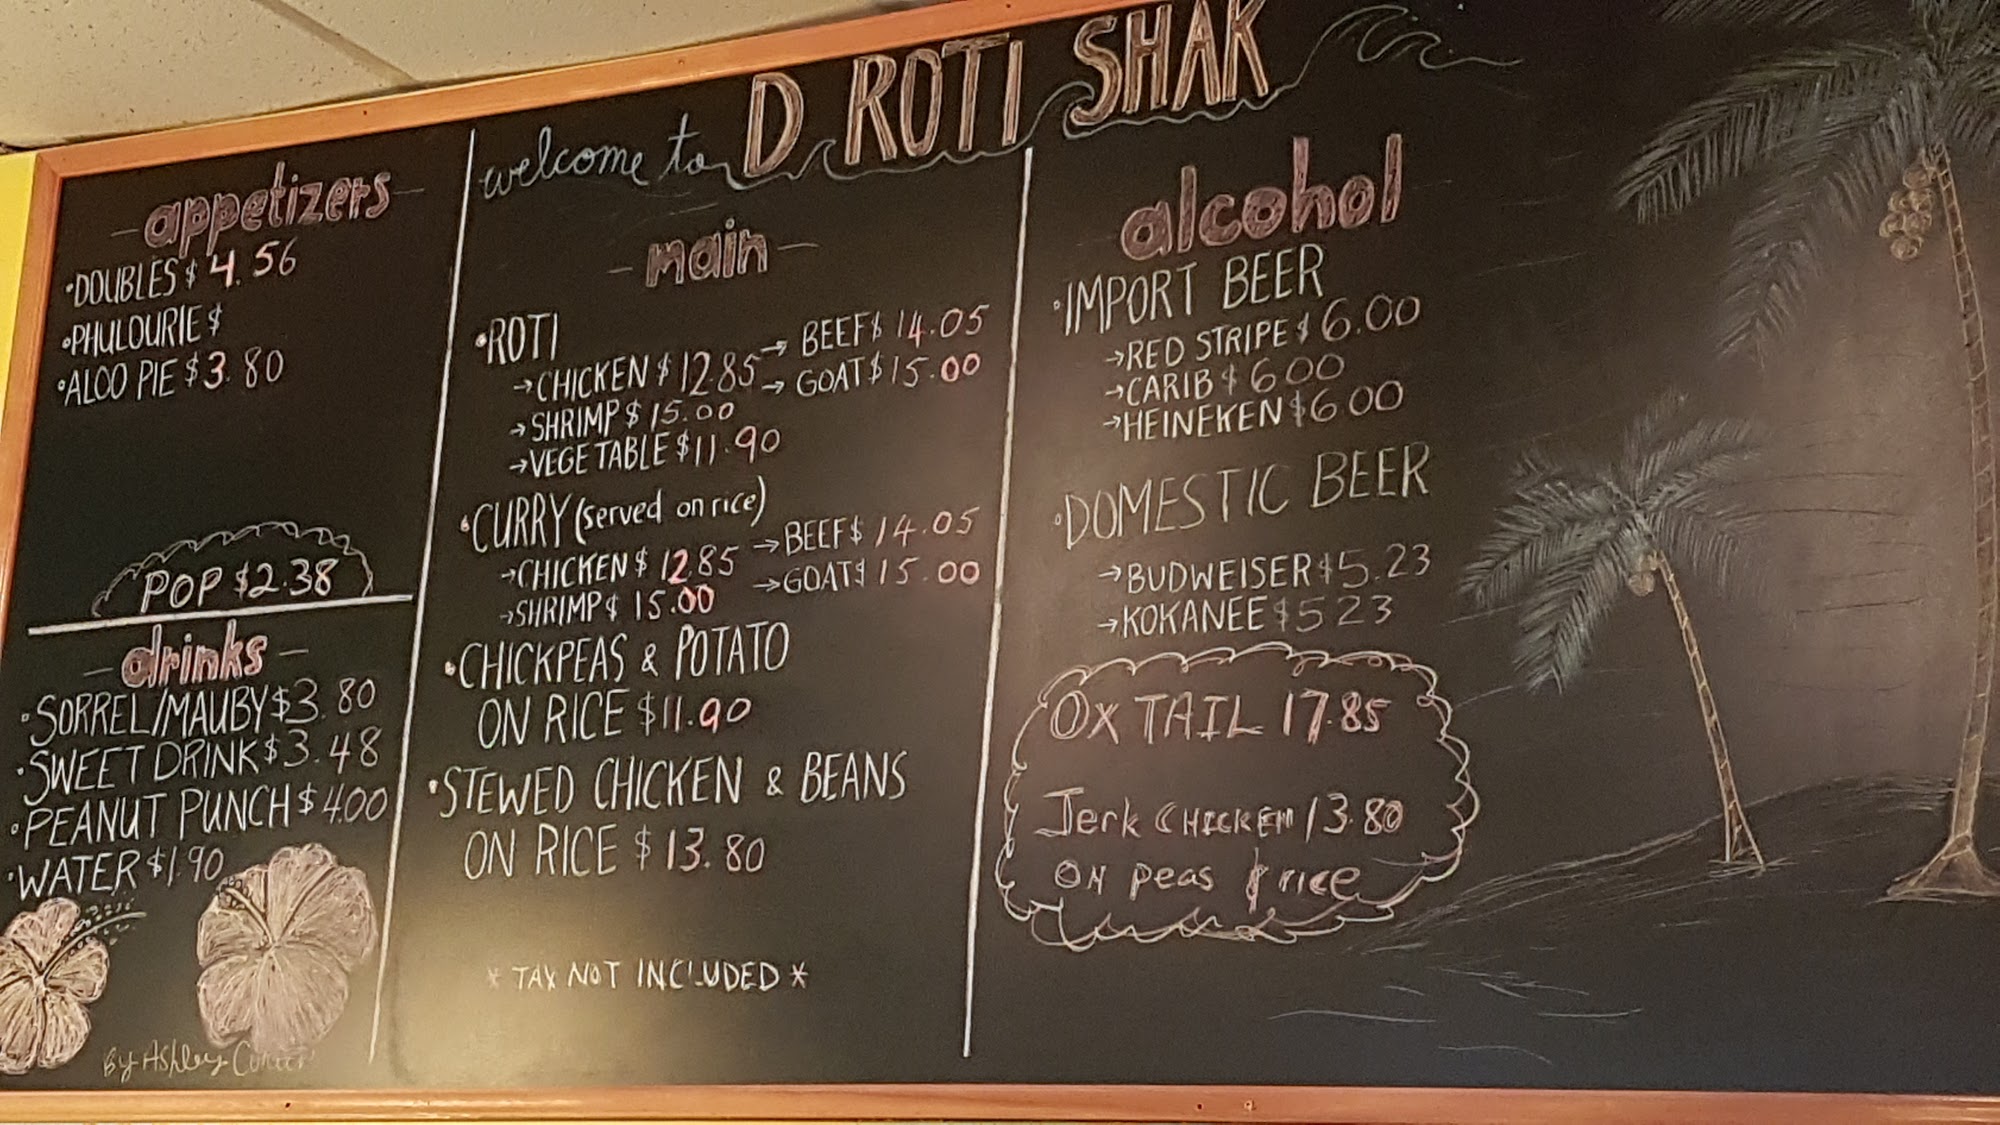 welcome to D ROTI SHAK
- appetizers -
• DOUBLES $ 4.56
• PHULOURIE $
• ALOO PIE $ 3.80
POP $2.38
- drinks -
• SORREL/MAUBY $3.80
• SWEET DRINK $3.48
• PEANUT PUNCH $4.00
• WATER $1.90
By Ashley
- main -
• ROTI
→ CHICKEN $ 12.85 → BEEF $ 14.05
→ SHRIMP $ 15.00 → GOAT $ 15.00
→ VEGETABLE $11.90
• CURRY (served on rice)
→ CHICKEN $ 12.85 → BEEF $ 14.05
→ SHRIMP $ 15.00 → GOAT $ 15.00
• CHICKPEAS & POTATO
ON RICE $11.90
• STEWED CHICKEN & BEANS
ON RICE $ 13.80
* TAX NOT INCLUDED *
alcohol
• IMPORT BEER
→ RED STRIPE $ 6.00
→ CARIB $ 6 00
→ HEINEKEN $6 00
• DOMESTIC BEER
→ BUDWEISER $5.23
→ KOKANEE $5 23
OX TAIL 17.85
Jerk CHICKEN 13.80
ON peas & rice